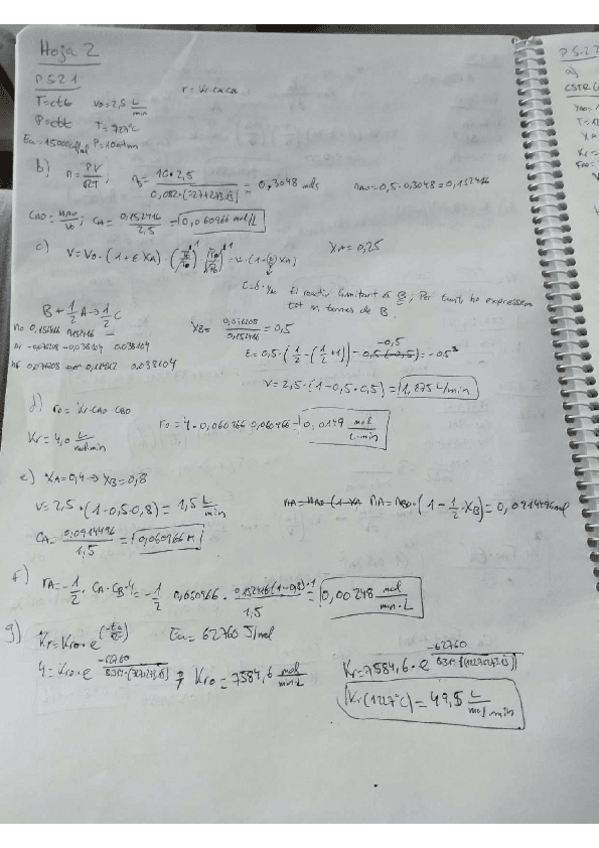 Hoja 2
P 5.2.1
r = kr·ca·ca
T = ctt v0 = 2,5 L/min
P = ctt T = 727°C
Ea = 15000 P = 10 atm
b) n = PV/RT ; n0 = 10·2,5 / 0,082·(727+273,15) = 0,3048 mols nA0 = 0,5·0,3048 = 0,152416
CA0 = nA0/V0 ; CA = 0,152416/2,5 = 0,060966 mol/L
c) V = V0·(1+εXA)·(P0/P)·(T/T0) = V·(1-εXA) XA = 0,25
ε = δ·yA0 El reactiu limitant és B; Per tant, ho expressem
tot en termes de B.
B + 1/2 A → 1/2 C
n0 0,152416 0,152416 —
Δr -0,076208 -0,038104 0,038104
nf 0,076208 0,038104
XB = 0,076208/0,152416 = 0,5
-0,5
ε = 0,5·(1/2 - (1/2 + 1)) = -0,5
V = 2,5·(1-0,5·0,5) = 1,875 L/min
d) r0 = kr·CA0·CB0
kr = 4,0 L/mol·min
r0 = 4·0,060966·0,060966 = 0,0149 mol/L·min
e) XA = 0,4 → XB = 0,8
V = 2,5·(1-0,5·0,8) = 1,5 L/min nA = nA0·(1-XA nA = nB0·(1 - 1/2·XB) = 0,0914496 mol
CA = 0,0914496/1,5 = 0,060966 M
f) rA = -1/2·CA·CB·4 = -1/2 0,060966·0,152416(1-0,8)·4/1,5 = 0,00248 mol/min·L
g) kr = kr0·e^(-Ea/RT) Ea = 62760 J/mol
4 = kr0·e^(-62760/8,314·(727+273,15)) ; kr0 = 7584,6 mol/min·L
kr = 7584,6·e^(-62760/8,314·(1227+273,15))
kr(1227°C) = 49,5 L/mol·min
P 5.2.2
a)
CSTR